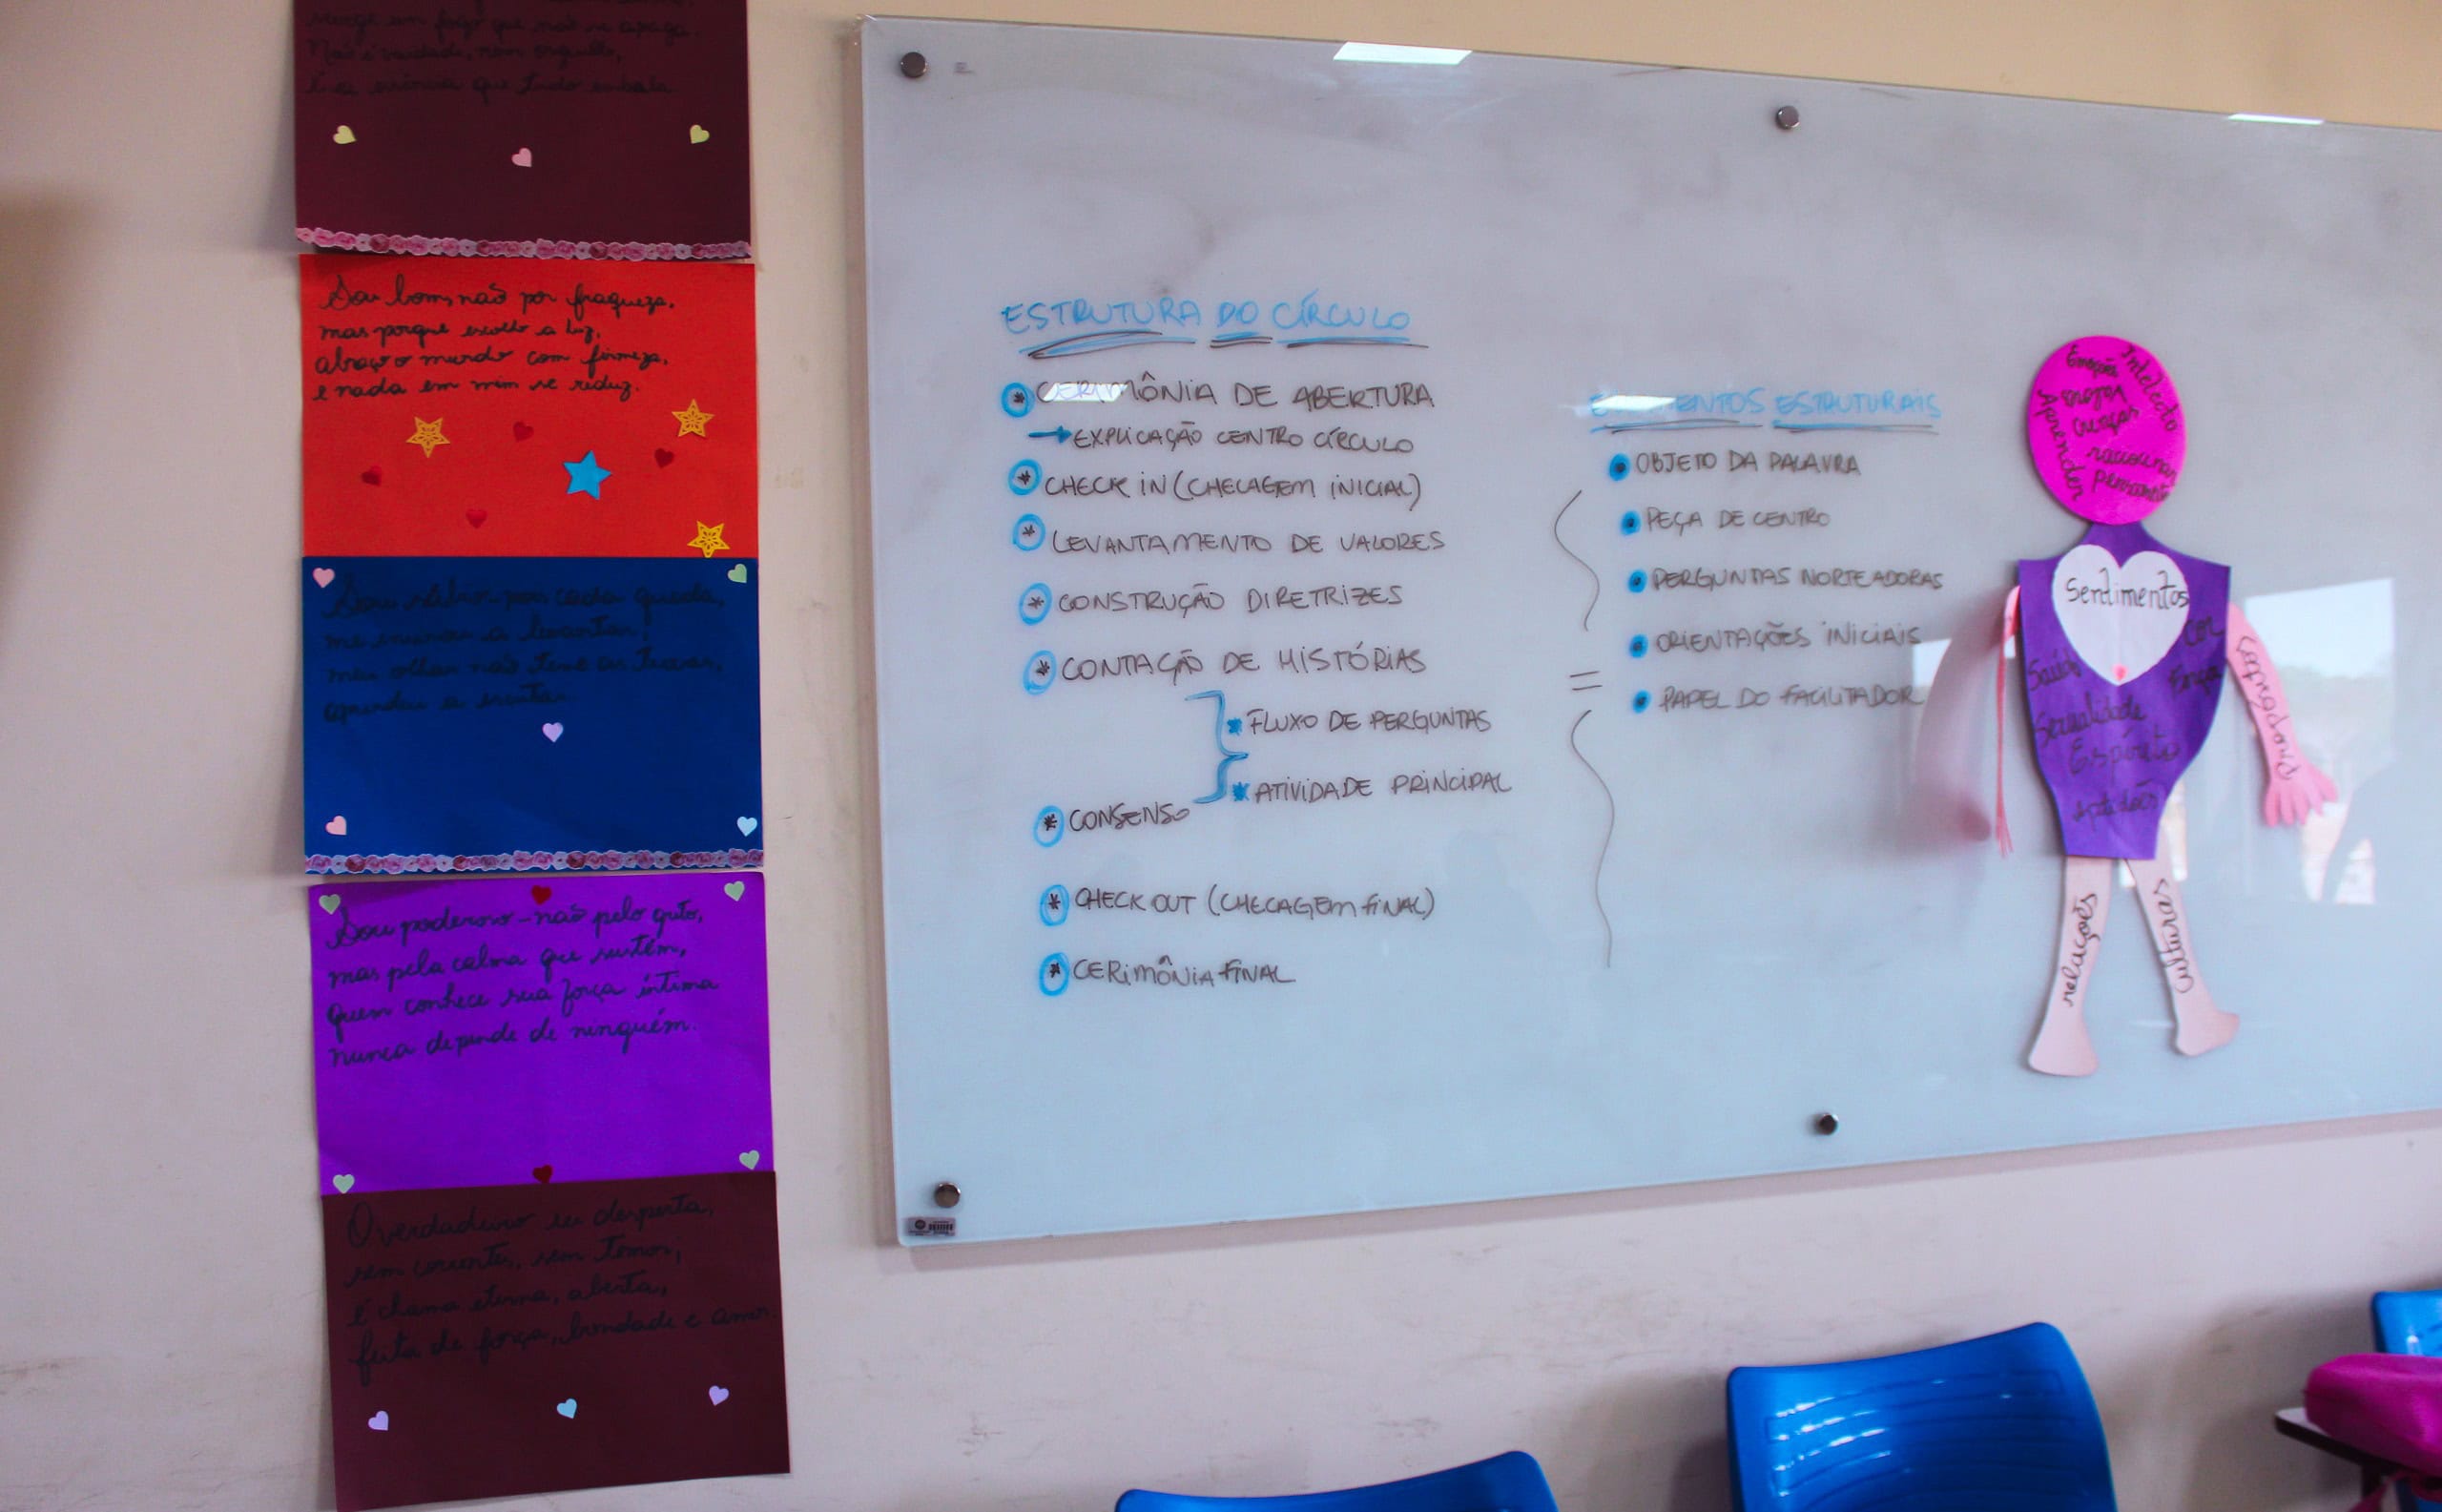 surge um fogo que não se apaga.
Não é vaidade, nem orgulho,
é que tudo embala
Sou bom, não por fraqueza,
mas porque escolho a luz,
abraço o mundo com firmeza,
e nada em mim se reduz.
Sou por cada queda,
me ensinou a levantar!
meu olhar não teme as trevas,
aprendeu a
Sou poderoso - não pelo grito,
mas pela calma que sustém,
Quem conhece sua força íntima
nunca depende de ninguém.
O verdadeiro eu desperta,
sem correntes, sem temor,
é chama eterna, aberta,
feita de força, bondade e amor.
ESTRUTURA DO CÍRCULO
* CERIMÔNIA DE ABERTURA
→ EXPLICAÇÃO CENTRO CÍRCULO
* CHECK IN (CHECAGEM INICIAL)
* LEVANTAMENTO DE VALORES
* CONSTRUÇÃO DIRETRIZES
* CONTAÇÃO DE HISTÓRIAS
* FLUXO DE PERGUNTAS
* ATIVIDADE PRINCIPAL
* CONSENSO
* CHECK OUT (CHECAGEM FINAL)
* CERIMÔNIA FINAL
ELEMENTOS ESTRUTURAIS
• OBJETO DA PALAVRA
• PEÇA DE CENTRO
• PERGUNTAS NORTEADORAS
• ORIENTAÇÕES INICIAIS
=
• PAPEL DO FACILITADOR
Intelecto
Emoção
crenças
Aprender
raciocinar
pensamento
Sentimentos
cor
Saúde
Força
Sexualidade
Espírito
Aptidões
relações
culturas